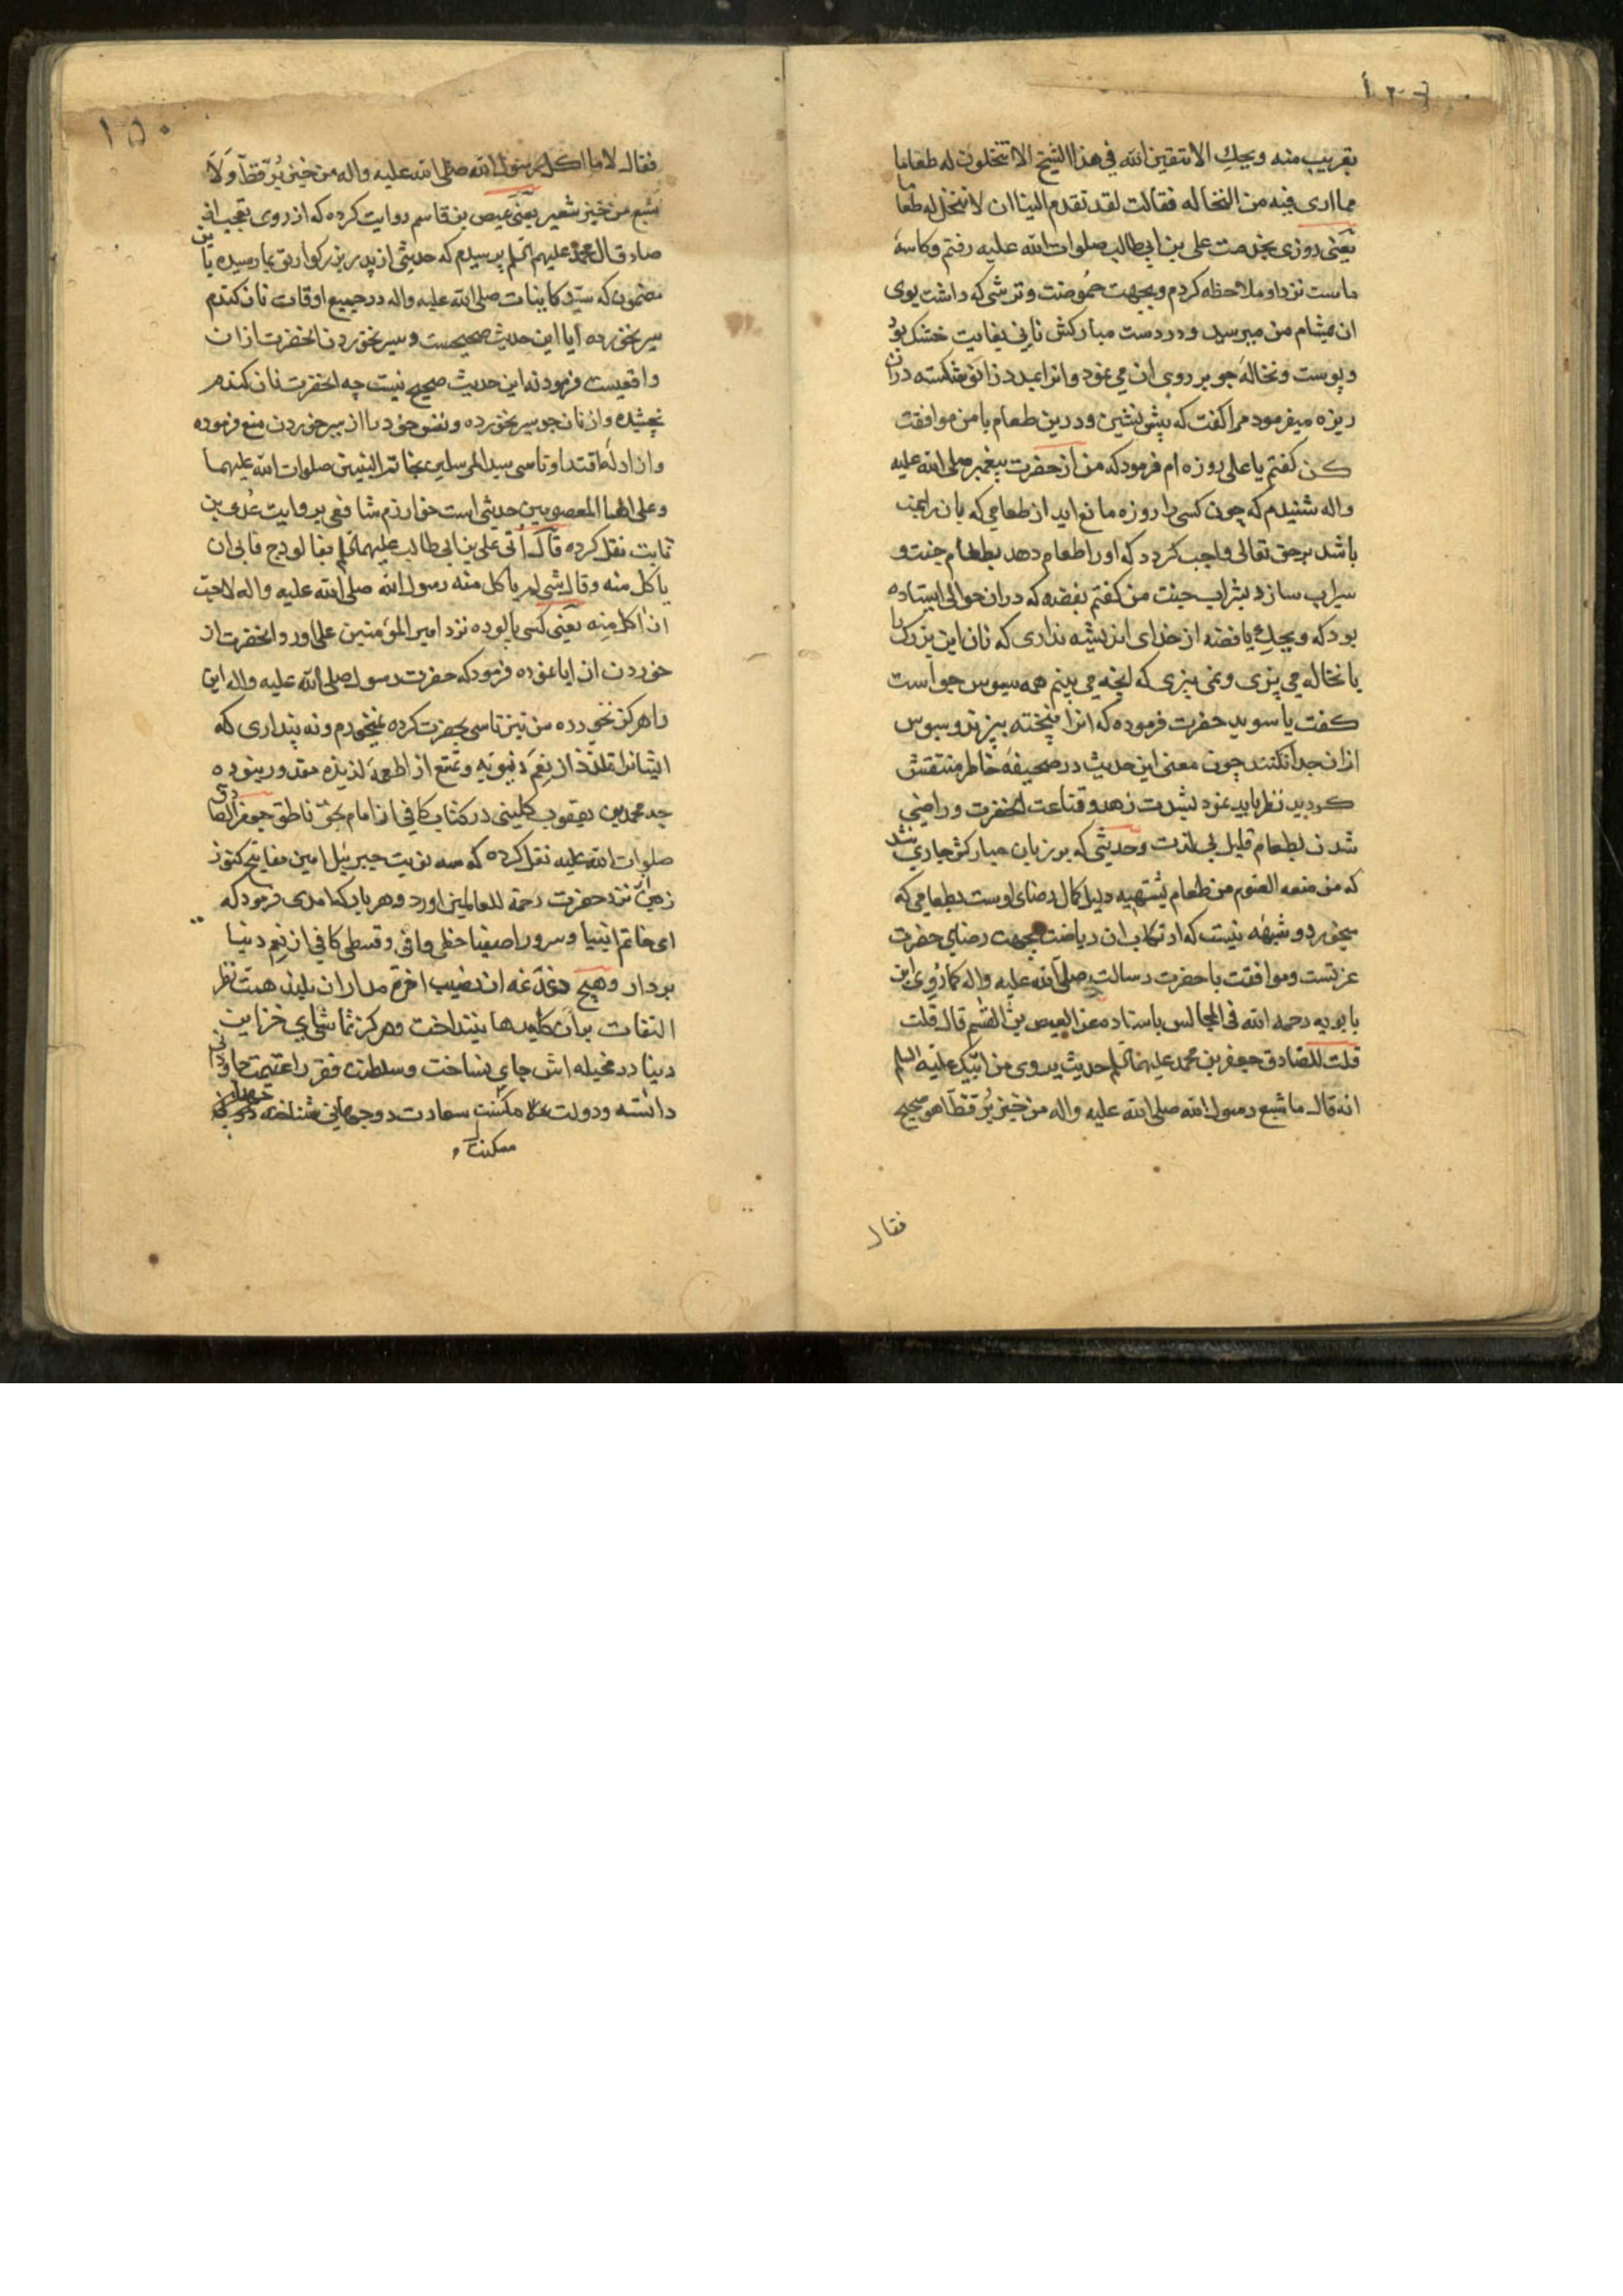 بقریب منه ویحك الا تتقین الله فی هذا الشیخ الا تنخلون له طعاما
مما اری فیه من النخاله فقالت لقد تقدم الینا ان لا ننخل له طعاما
یعنی روزی بخدمت علی بن ابی طالب صلوات الله علیه رفتم و کاسهٔ
ماست نزد او ملاحظه کردم و بجهت حموضت و ترشی که داشت بوی
ان بمشام من میرسید و در دست مبارکش نانی بغایت خشک بود
و پوست و نخالهٔ جو بر روی ان می نمود و انرا بمدد زانو شکسته در ان
ریزه میفرمود مرا گفت که پیش نشین و درین طعام با من موافقت
کن گفتم یا علی روزه ام فرمود که من از حضرت پیغمبر صلی الله علیه
واله شنیدم که چون کسی را روزه مانع اید از طعامی که بان راغب
باشد بر حق تعالی واجب کردد که او را طعام دهد بطعام جنت و
سیراب سازد بشراب جنت من گفتم بفضه که در ان حوالی ایستاده
بود که ویحك یا فضه از خدای اندیشه نداری که نان این بزرگ را
با نخاله می پزی و نمی بیزی که انچه می بینم همه سبوس جو است
گفت یا سوید حضرت فرموده که انرا نپخته بیزند و سبوس
ازان جدا نکنند چون معنی این حدیث در صحیفهٔ خاطر منتقش
گردید نظر باید نمود بشدت زهد و قناعت انحضرت و راضی
شدن بطعام قلیل بی لذت و حدیثی که بر زبان مبارکش جاری شد
که من منعه الصوم من طعام یشتهیه دلیل کمال رضای اوست بطعامی که
میخورد و شبهه نیست که ارتکاب ان ریاضت بجهت رضای حضرت
عزتست و موافقت با حضرت رسالت صلی الله علیه واله کما روی ابن
بابویه رحمه الله فی المجالس باسناده عن العیص بن القسم قال قلت
قلت للصادق جعفر بن محمد علیهما السلم حدیث یروی من ابیك علیه السلم
انه قال ما شبع رسول الله صلی الله علیه واله من خبز بر قط اهو صحیح
فقال
۱۵۰
فقال لا ما اکل رسول الله صلی الله علیه واله من خبز بر قط و لا
شبع من خبز شعیر یعنی عیص بن قاسم روایت کرده که از روی تعجب از
صادق ال محمد علیهم السلم پرسیدم که حدیثی از پدر بزرکوارتو بما رسیده باین
مضمون که سید کاینات صلی الله علیه واله در جمیع اوقات نان کندم
سیر نخورده ایا این حدیث صحیحست و سیر نخوردن انحضرت ازان
واقعیست فرمودند این حدیث صحیح نیست چه انحضرت نان کندم
نچشیده و از نان جو سیر نخورده و نفس خود را از سیر خوردن منع فرموده
و از ادلهٔ اقتدا و تاسی سید المرسلین بخاتم النبیین صلوات الله علیهما
و علی الهما المعصومین حدیثی است خوارزم شافعی بروایت عدی بن
ثابت نقل کرده قال اُتی علی بن ابی طالب علیهما السلم بفالوذج فابی ان
یاکل منه و قال شی لم یاکل منه رسول الله صلی الله علیه واله لا احب
ان اکل منه یعنی کسی پالوده نزد امیر المومنین علی اورد و انحضرت از
خوردن ان ابا نموده فرمود که حضرت رسول صلی الله علیه واله این
را هرکز نخورده من نیز تاسی بحضرت کرده نمیخورم و نه پنداری که
ایشانرا تلذذ از نعم دنیویه و تمتع از اطعمهٔ لذیذه مقدور نبوده
چه محمد بن یعقوب کلینی در کتاب کافی از امام بحق ناطق جعفر الصادق
صلوات الله علیه نقل کرده که سه نوبت جبرئیل امین مفاتیح کنوز
زمین نزد حضرت رحمة للعالمین اورد و هر بار که امدی فرمود که
ای خاتم انبیا و سرور اصفیا حظی وافی و قسطی کافی از نعم دنیا
بردار و هیچ دغدغه از نصیب اخرة مدار ان بلند همت نظر
التفات بران کلیدها نینداخت و هرکز تماشای خزاین
دنیا در مخیله اش جای نساخت و سلطنت فقر را غنیمت جاودانی
دانسته و دولت مسکنت سعادت دوجهانی شناخته
مسکنت